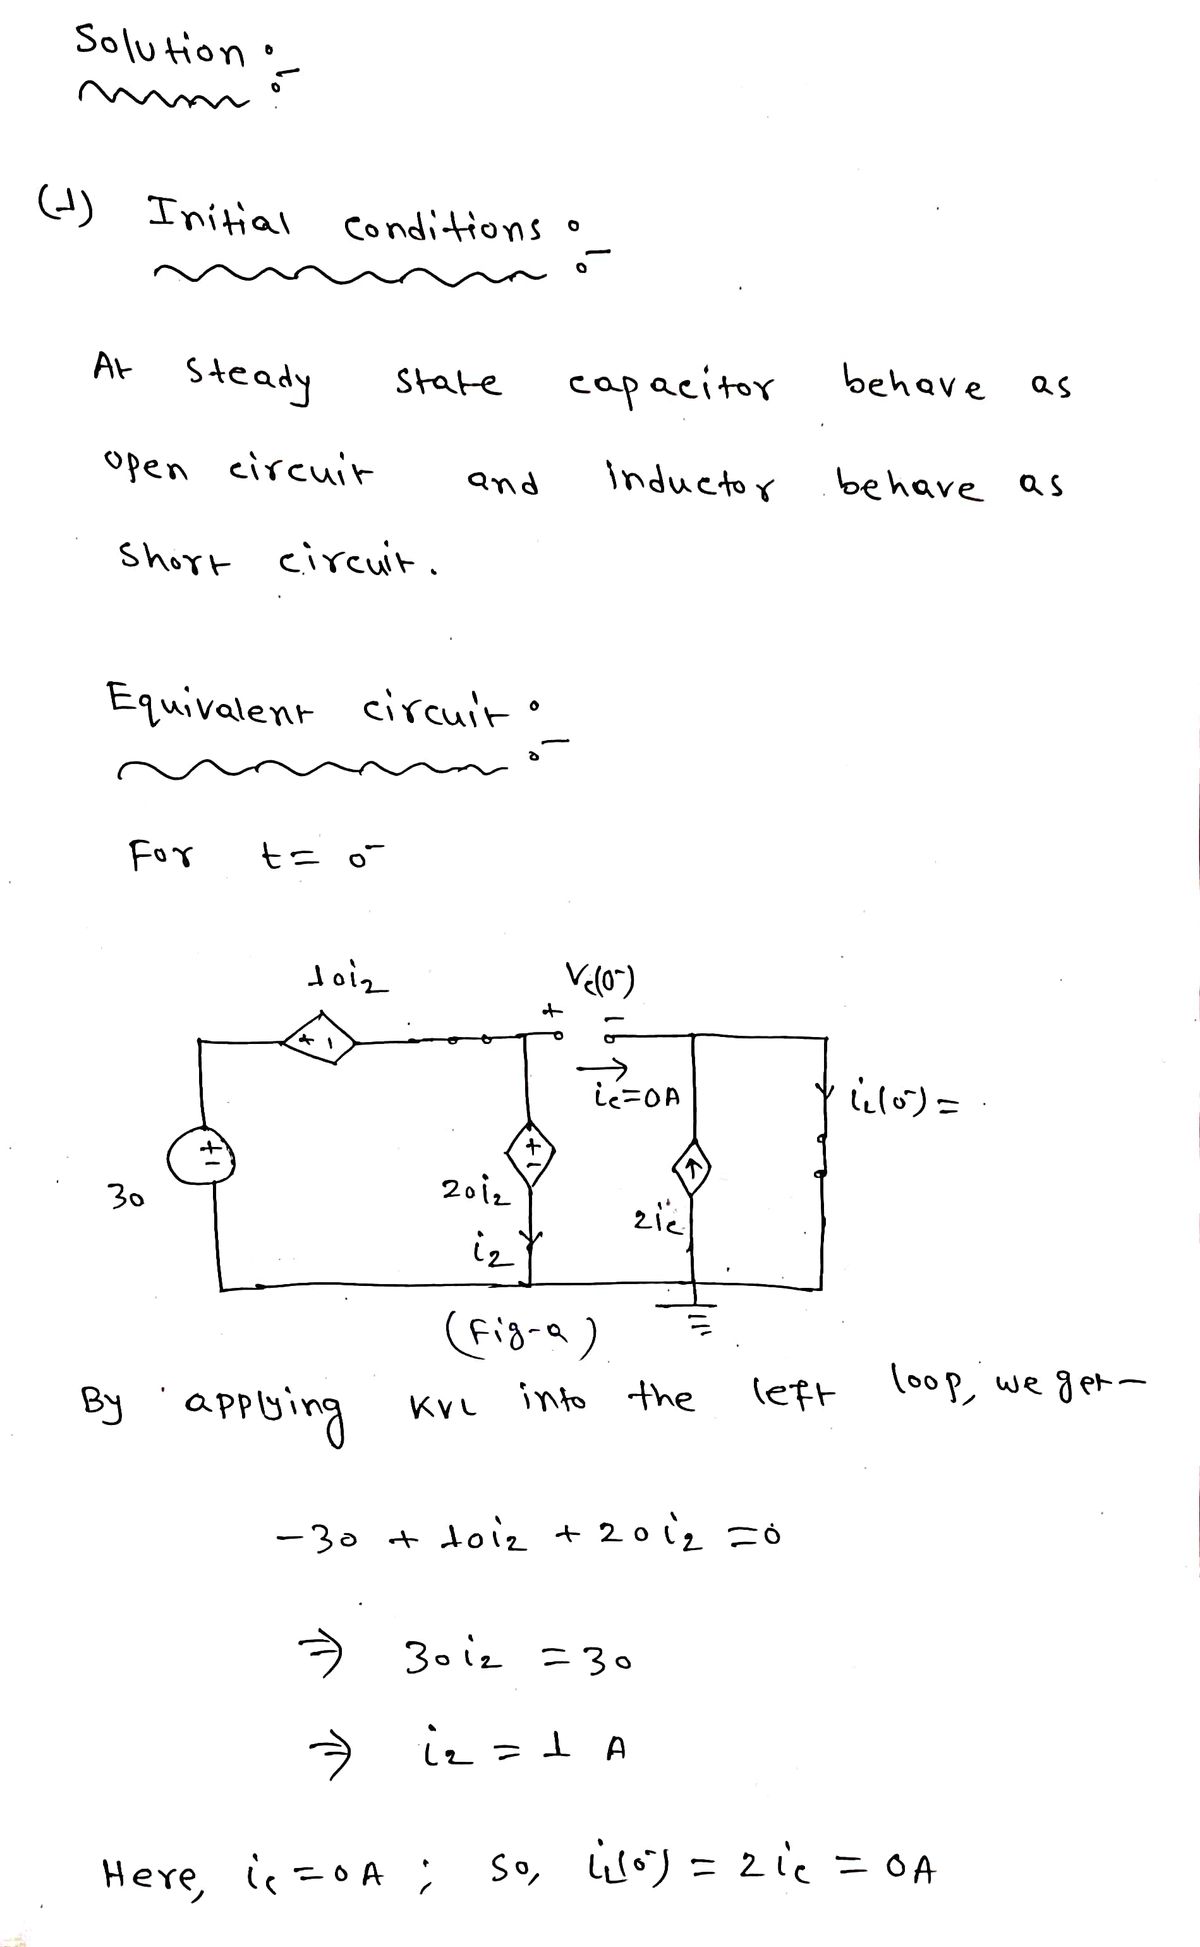 Solution :-
(1) Initial conditions :-
At steady state capacitor behave as
open circuit and inductor behave as
short circuit.
Equivalent circuit :-
For t = 0⁻
10i₂
Vc(0⁻)
+ -
+ -
ic=0A
iL(0⁻) =
+ -
+ -
30
20i₂
2ic
i₂
(Fig-a)
By applying KVL into the left loop, we get-
-30 + 10i₂ + 20i₂ = 0
⇒ 30i₂ = 30
⇒ i₂ = 1 A
Here, ic = 0A ; so, iL(0⁻) = 2ic = 0A